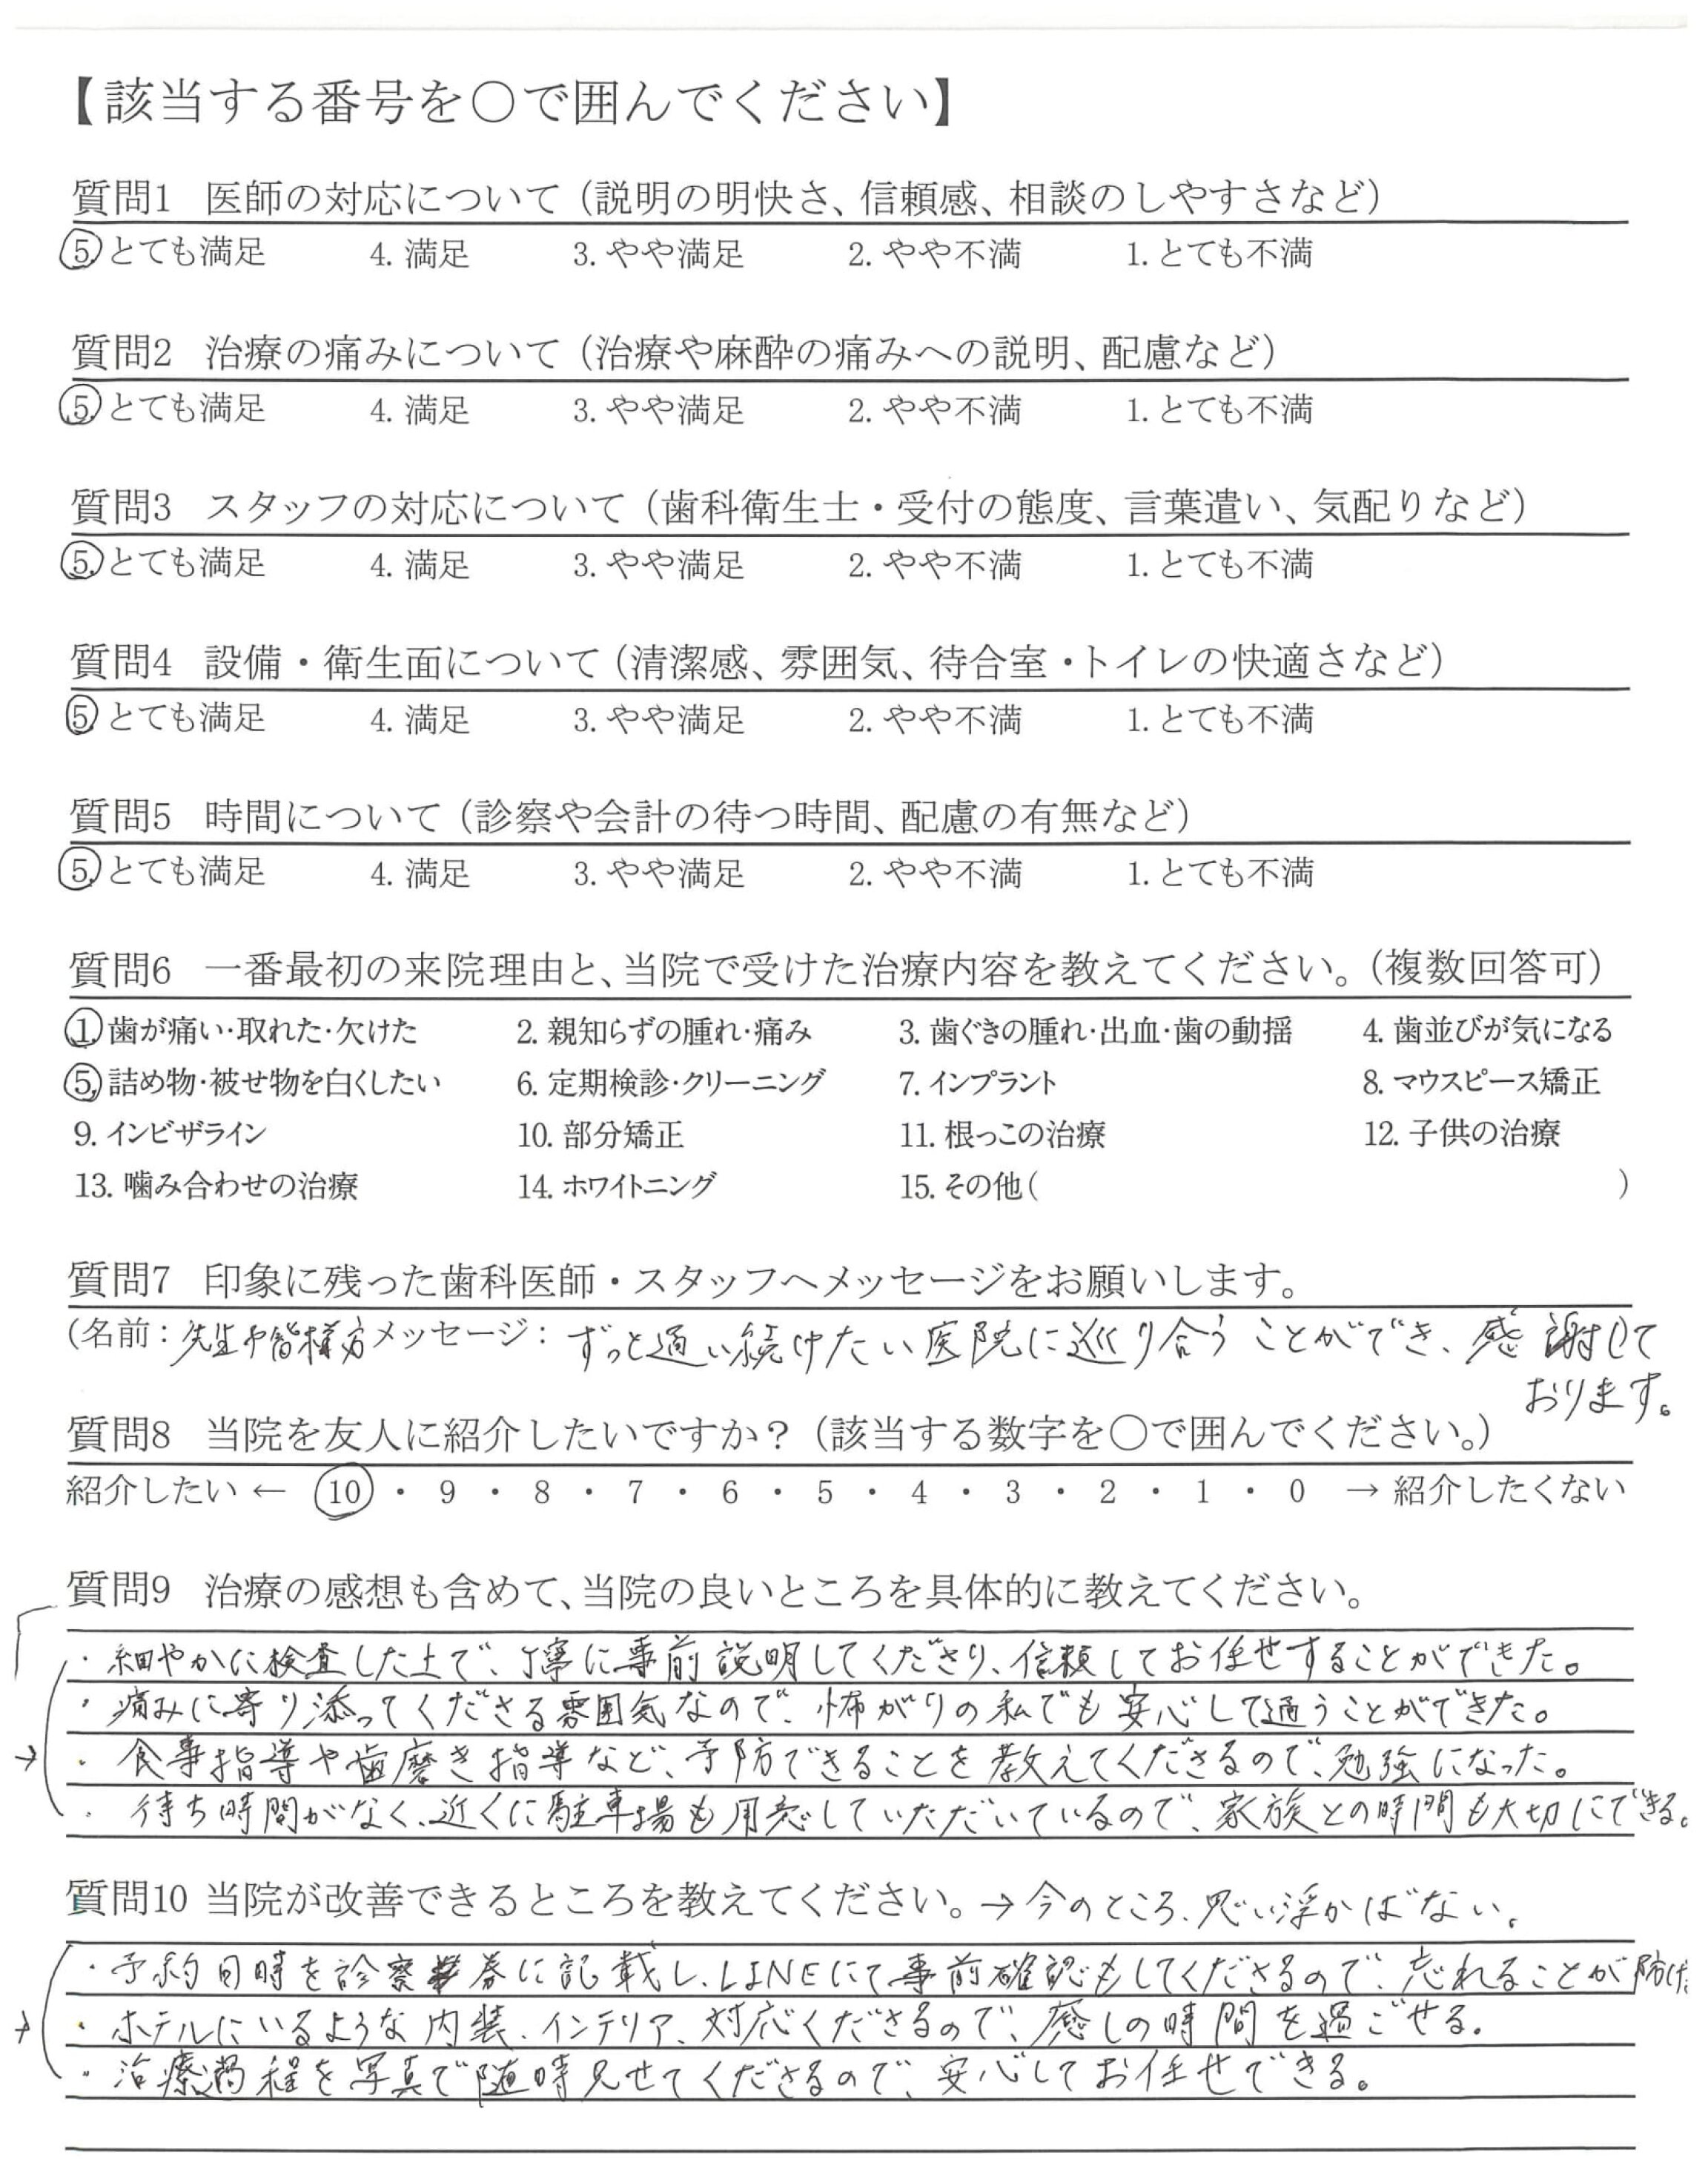 【該当する番号を〇で囲んでください】
質問1 医師の対応について（説明の明快さ、信頼感、相談のしやすさなど）
5. とても満足 4. 満足 3. やや満足 2. やや不満 1. とても不満
質問2 治療の痛みについて（治療や麻酔の痛みへの説明、配慮など）
5. とても満足 4. 満足 3. やや満足 2. やや不満 1. とても不満
質問3 スタッフの対応について（歯科衛生士・受付の態度、言葉遣い、気配りなど）
5. とても満足 4. 満足 3. やや満足 2. やや不満 1. とても不満
質問4 設備・衛生面について（清潔感、雰囲気、待合室・トイレの快適さなど）
5. とても満足 4. 満足 3. やや満足 2. やや不満 1. とても不満
質問5 時間について（診察や会計の待つ時間、配慮の有無など）
5. とても満足 4. 満足 3. やや満足 2. やや不満 1. とても不満
質問6 一番最初の来院理由と、当院で受けた治療内容を教えてください。（複数回答可）
1. 歯が痛い・取れた・欠けた 2. 親知らずの腫れ・痛み 3. 歯ぐきの腫れ・出血・歯の動揺 4. 歯並びが気になる
5. 詰め物・被せ物を白くしたい 6. 定期検診・クリーニング 7. インプラント 8. マウスピース矯正
9. インビザライン 10. 部分矯正 11. 根っこの治療 12. 子供の治療
13. 噛み合わせの治療 14. ホワイトニング 15. その他（ ）
質問7 印象に残った歯科医師・スタッフへメッセージをお願いします。
（名前：先生や皆様方 メッセージ：ずっと通い続けたい医院に巡り合うことができ、感謝して
おります。
質問8 当院を友人に紹介したいですか？（該当する数字を〇で囲んでください。）
紹介したい ← 10 ・ 9 ・ 8 ・ 7 ・ 6 ・ 5 ・ 4 ・ 3 ・ 2 ・ 1 ・ 0 → 紹介したくない
質問9 治療の感想も含めて、当院の良いところを具体的に教えてください。
・細やかに検査した上で、丁寧に事前説明してくださり、信頼してお任せすることができた。
・痛みに寄り添ってくださる雰囲気なので、怖がりの私でも安心して通うことができた。
・食事指導や歯磨き指導など、予防できることを教えてくださるので、勉強になった。
・待ち時間がなく、近くに駐車場も用意していただいているので、家族との時間も大切にできる。
質問10 当院が改善できるところを教えてください。→今のところ、思い浮かばない。
・予約日時を診察券に記載し、LINEにて事前確認もしてくださるので、忘れることが防げた
・ホテルにいるような内装、インテリア、対応くださるので、癒しの時間を過ごせる。
・治療過程を写真で随時見せてくださるので、安心してお任せできる。